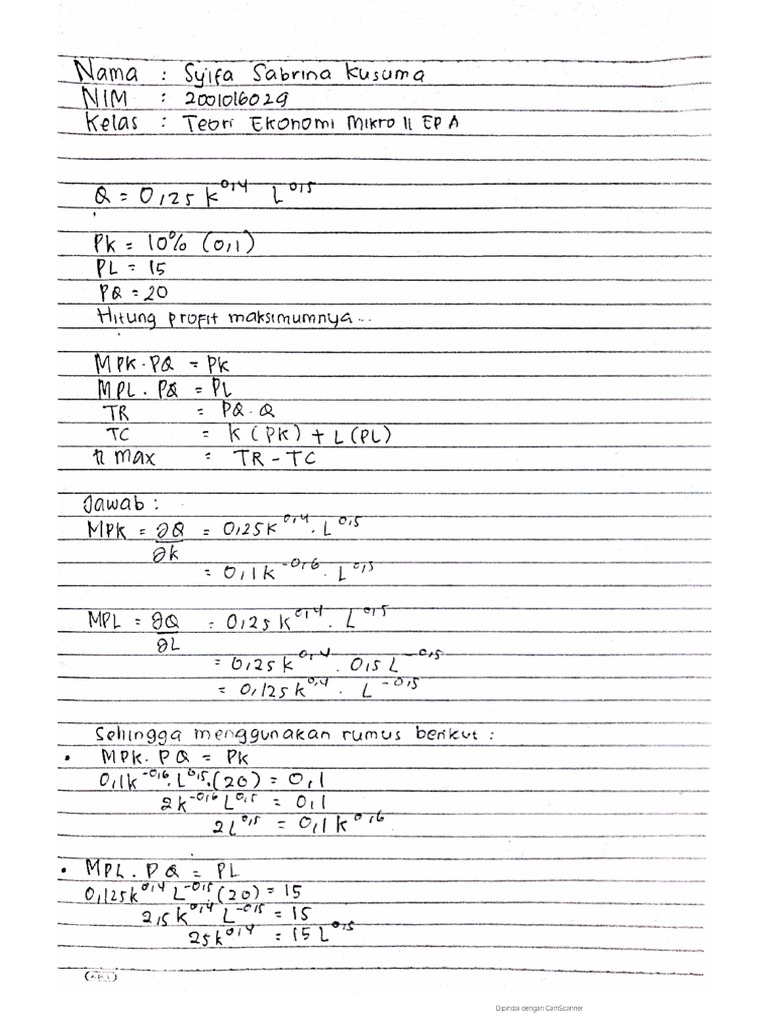 Nama : Syifa Sabrina Kusuma
NIM : 2001016029
Kelas : Teori Ekonomi Mikro II EP A
Q = 0,25 K^0,4 L^0,5
PK = 10% (0,1)
PL = 15
PQ = 20
Hitung profit maksimumnya...
MPK.PQ = PK
MPL.PQ = PL
TR = PQ.Q
TC = K (PK) + L (PL)
π max = TR - TC
Jawab :
MPK = ∂Q/∂K = 0,25K^0,4 . L^0,5
= 0,1K^-0,6 . L^0,5
MPL = ∂Q/∂L = 0,25K^0,4 . L^0,5
= 0,25K^0,4 . 0,5L^-0,5
= 0,125K^0,4 . L^-0,5
Sehingga menggunakan rumus berikut :
• MPK.PQ = PK
0,1K^-0,6.L^0,5.(20) = 0,1
2K^-0,6 L^0,5 = 0,1
2L^0,5 = 0,1K^0,6
• MPL.PQ = PL
0,125K^0,4 L^-0,5 (20) = 15
2,5K^0,4 L^-0,5 = 15
25K^0,4 = 15L^0,5
Dipindai dengan CamScanner